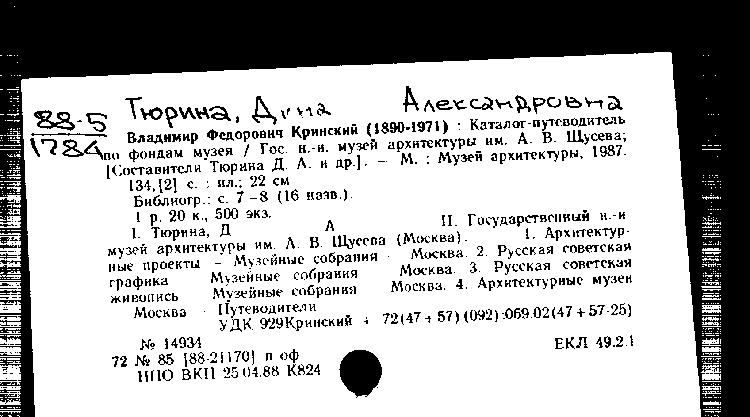 88-5
1784
Тюрина, Дина Александровна
Владимир Федорович Кринский (1890-1971) : Каталог-путеводитель
по фондам музея / Гос. н.-и. музей архитектуры им. А. В. Щусева;
[Составители Тюрина Д. А. и др.]. — М. : Музей архитектуры, 1987.
134,[2] с. : ил.; 22 см
Библиогр.: с. 7-8 (16 назв.).
1 р. 20 к., 500 экз.
I. Тюрина, Д А II. Государственный н.-и
музей архитектуры им. А. В. Щусева (Москва). 1. Архитектур-
ные проекты - Музейные собрания - Москва. 2. Русская советская
графика Музейные собрания Москва. 3. Русская советская
живопись Музейные собрания Москва. 4. Архитектурные музеи
Москва - Путеводители
УДК 929Кринский + 72(47+57)(092):069.02(47+57-25)
№ 14934
72 № 85 [88-21170] п оф
НПО ВКП 25.04.88 К824
ЕКЛ 49.2.1